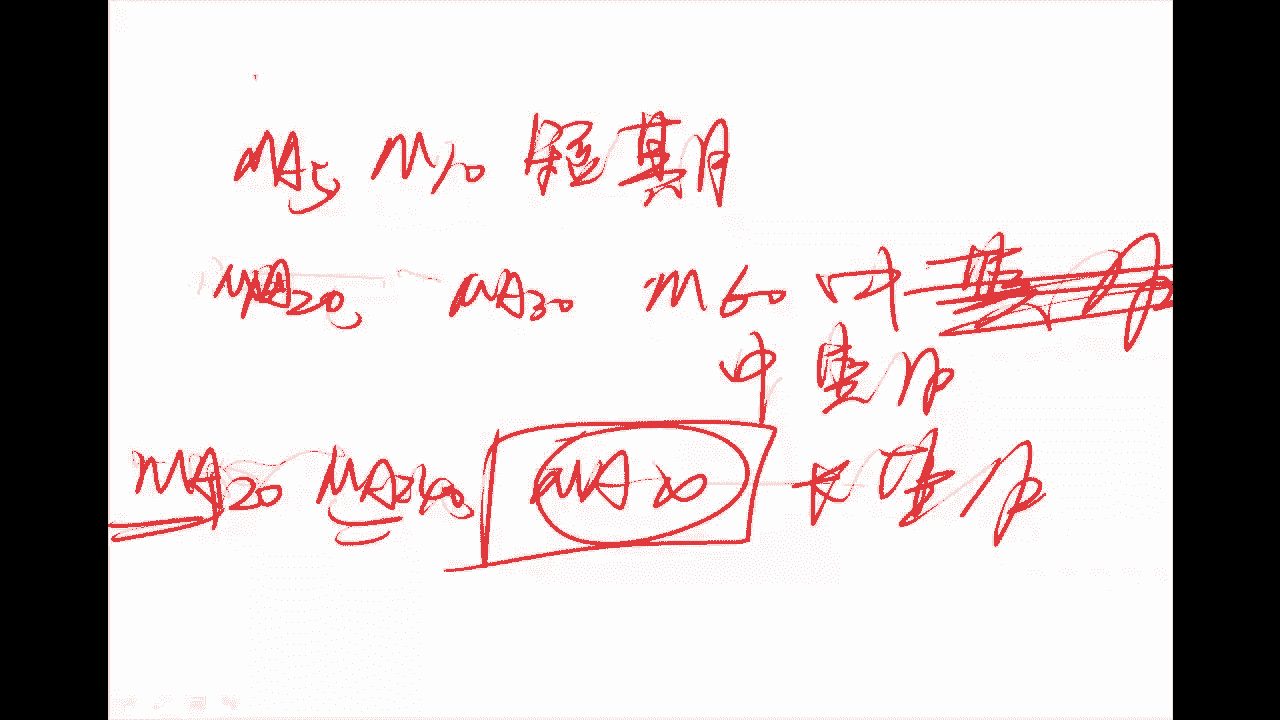 MA5 M10 短期
MA20 MA30 M60 中期
中期
MA20 MA240 MA20 长期